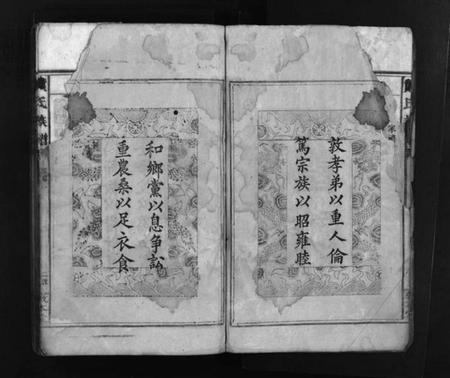 敦孝弟以重人倫
篤宗族以昭雍睦
和鄉黨以息争訟
重農桑以足衣食
氏族譜